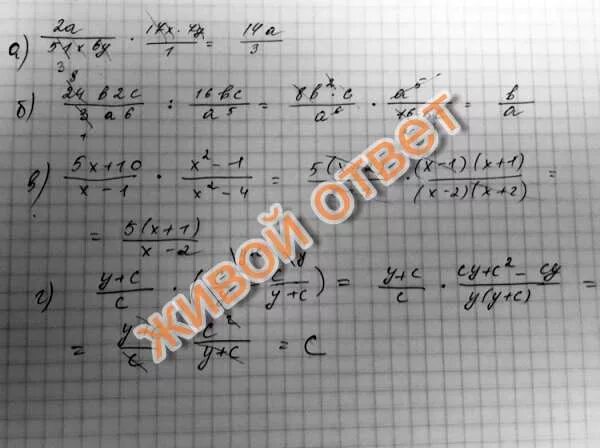 а) 2a / 51x6y · 17x · 7y / 1 = 14a / 3
б) 24 b2c / 3 a6 : 16bc / a5 = 8b2 · c / a6 · a5 / 16 = b / a
в) 5x+10 / x-1 · x2-1 / x2-4 = 5(x · (x-1)(x+1) / (x-2)(x+2) =
= 5(x+1) / x-2
г) y+c / c · ( c / y+c ) = y+c / c · cy+c2-cy / y(y+c) =
= y c2 / y+c = c
ЖИВОЙ ОТВЕТ